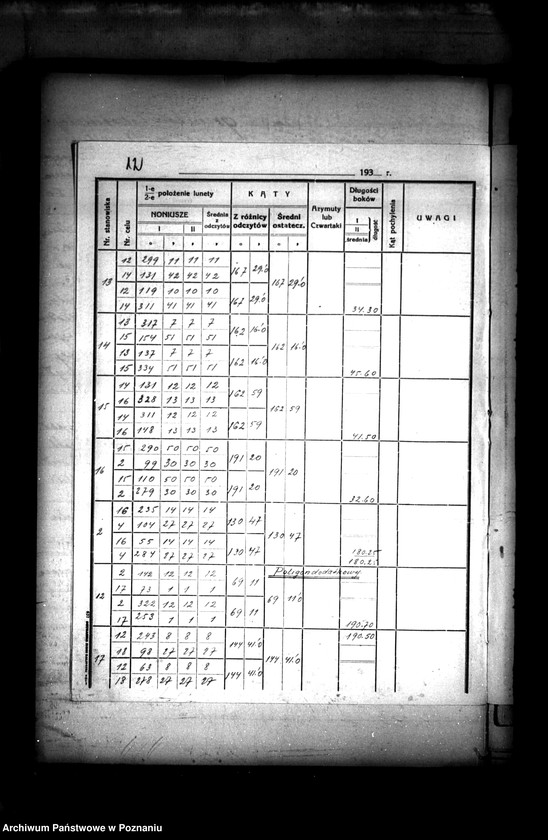 12
193 r.
Nr. stanowiska
Nr. celu
1-e
2-e położenie lunety
NONIUSZE
I II
Średnia z odczytów
KĄTY
Z różnicy odczytów
Średni ostatecz.
Azymuty lub Czwartaki
Długości boków
I
II
średnia
długość
Kąt pochylenia
UWAGI
13
12 299 11 11 11 167 29.0 167 29.0
14 131 42 42 42
12 119 10 10 10 167 29.0
14 311 41 41 41 34.30
14
13 317 7 7 7 162 16.0 162 16.0
15 154 51 51 51
13 137 7 7 7 162 16.0
15 334 51 51 51 45.60
15
14 131 12 12 12 162 59 162 59
16 328 13 13 13
14 311 12 12 12 162 59
16 148 13 13 13 41.50
16
15 290 50 50 50 191 20 191 20
2 99 30 30 30
15 110 50 50 50 191 20
2 279 30 30 30 32.60
2
16 235 14 14 14 130 47 130 47
4 104 27 27 27
16 55 14 14 14 130 47 180.25
4 284 27 27 27 180.25
12
2 142 12 12 12 69 11 Poligon dodatkowy
17 73 1 1 1 69 11.0
2 322 12 12 12 69 11
17 253 1 1 1 190.70
17
12 243 8 8 8 144 41.0 144 41.0 190.50
18 98 27 27 27
12 63 8 8 8 144 41.0
18 278 27 27 27
Archiwum Państwowe w Poznaniu